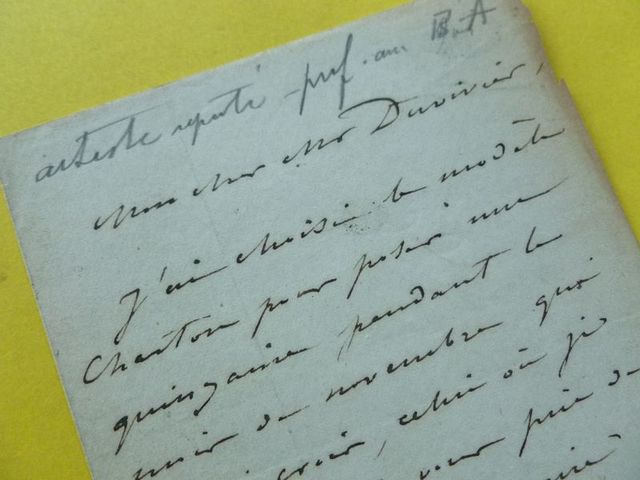 artiste réputé - prof. au B. A
Mon cher Mr Duvivier,
J'ai choisi le modèle
Charton pour poser une
quinzaine pendant le
mois de novembre qui
croir, celui où je
vous prie de